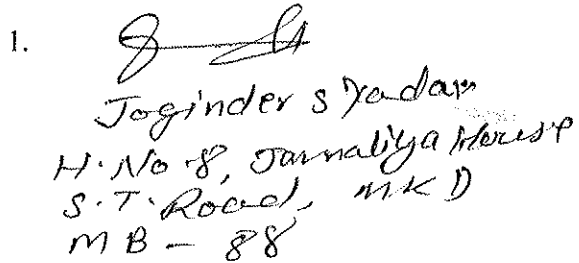 1.
Joginder S Yadav
H. No 8, Jarnaliya House
S.T. Road, MKD
MB - 88